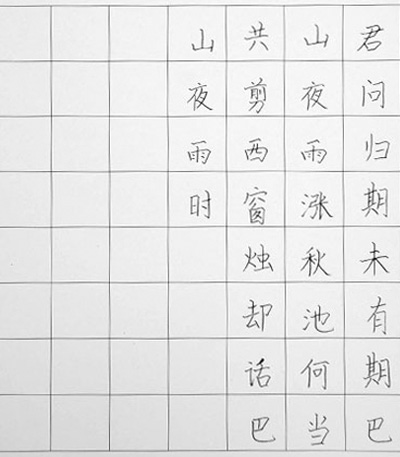 君问归期未有期巴
山夜雨涨秋池何当
共剪西窗烛却话巴
山夜雨时